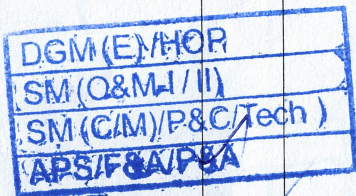 DGM (E)/HOP
SM (O&M-I / II)
SM (C/M)/P&C/Tech )
APS/F&A/P&A